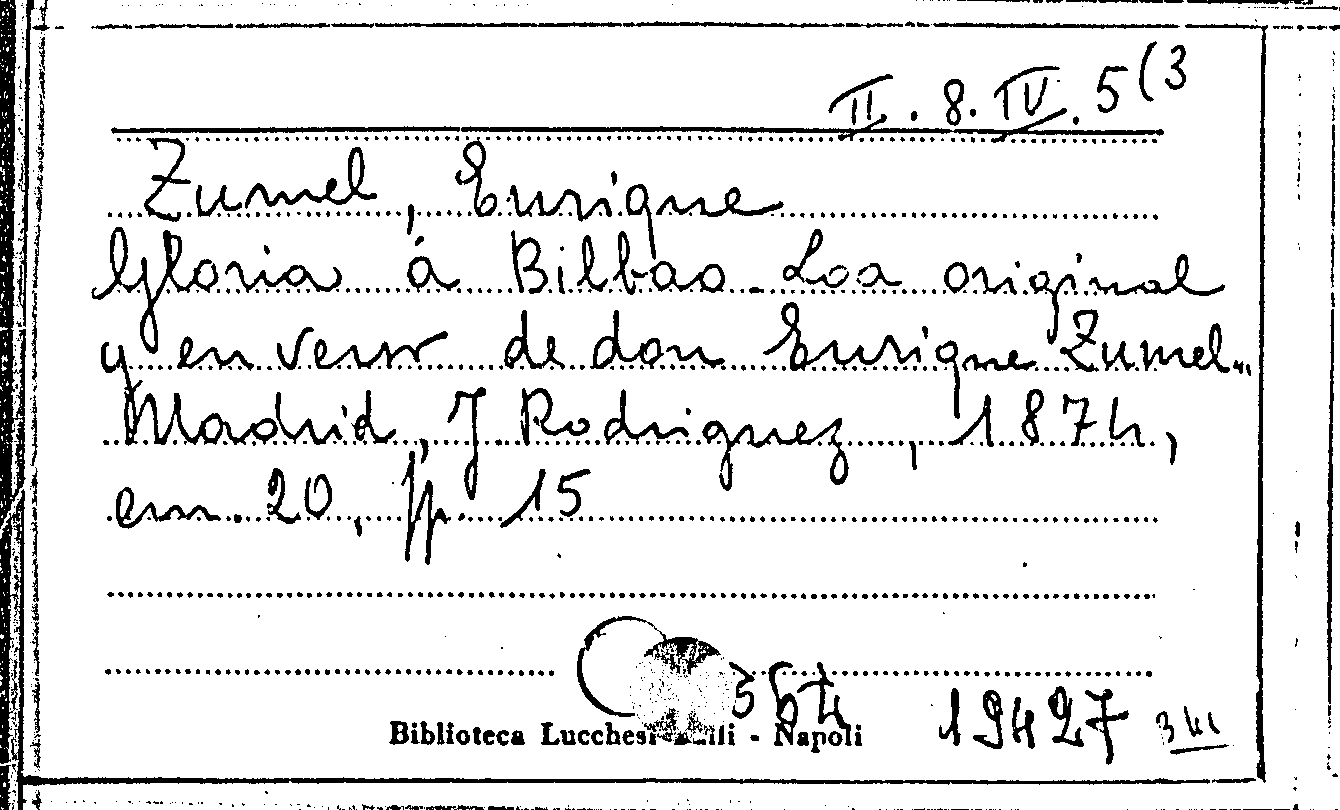 II. 8. IV. 5(3
Zumel, Enrique
Gloria á Bilbao. Loa original
y en verso de don Enrique Zumel..
Madrid, J Rodriguez, 1874,
cm. 20, pp. 15
564 19427
Biblioteca Lucchesi - Napoli